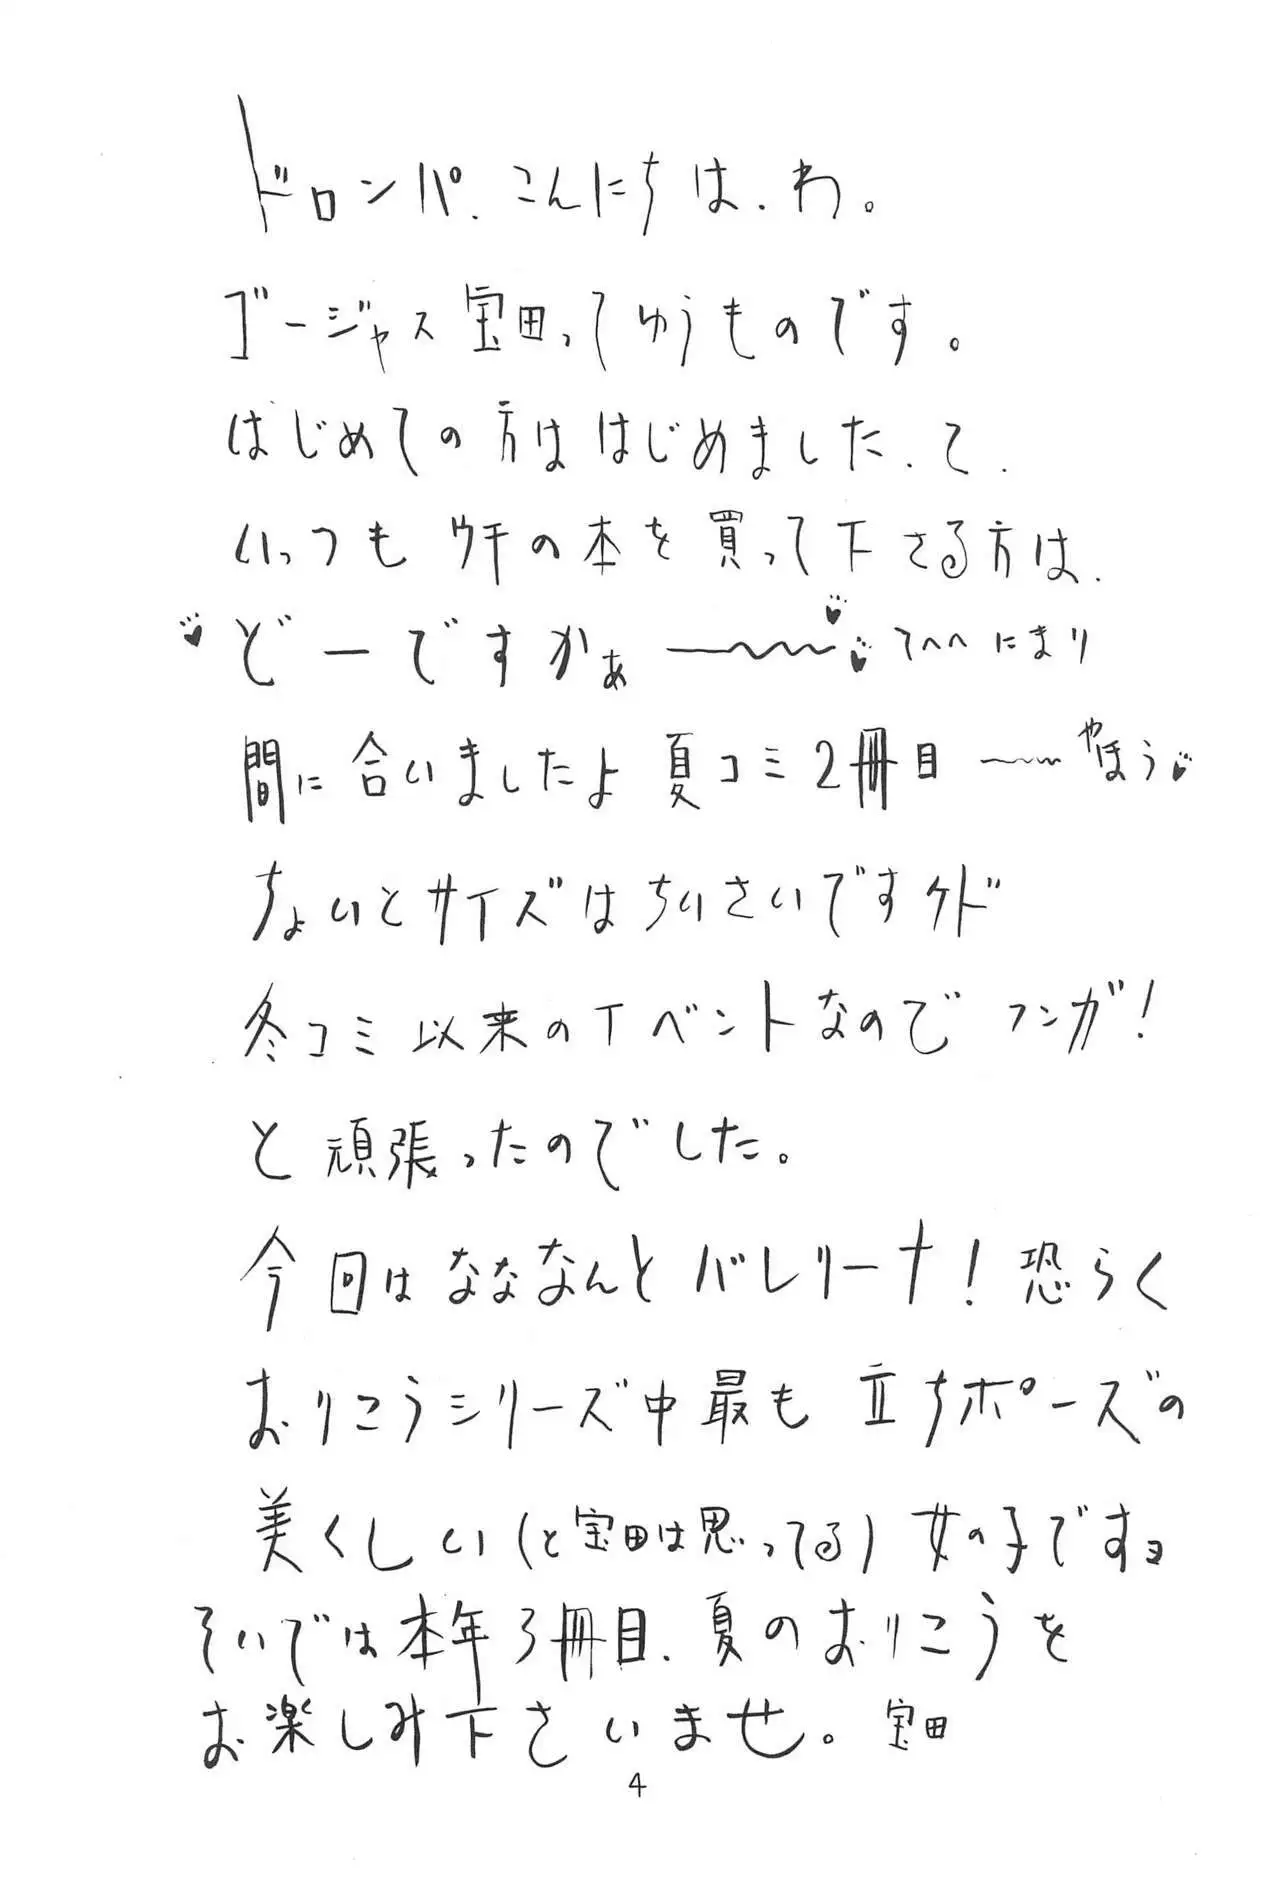 ドロンパ.こんにちは.わ。
ゴージャス宝田ってゆうものです。
はじめての方ははじめました.て.
いっつもウチの本を買って下さる方は.
どーですかぁ〜〜〜 てへへ にまり
間に合いましたよ 夏コミ2冊目〜〜 やほう
ちょいとサイズはちいさいですケド
冬コミ以来のイベントなので フンガ!
と頑張ったのでした。
今回はなななんとバレリーナ! 恐らく
おりこうシリーズ中最も 立ちポーズの
美くしい(と宝田は思ってる)女の子ですョ
そいでは本年3冊目.夏のおりこうを
お楽しみ下さいませ。宝田
4